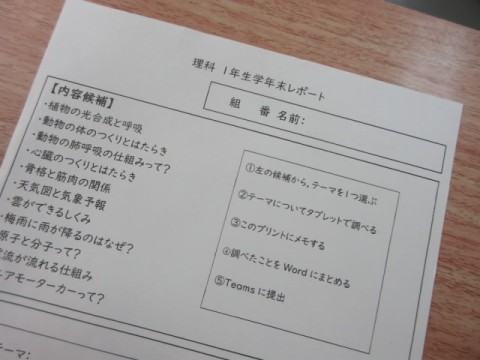 理科 1年生学年末レポート
組 番 名前:
【内容候補】
・植物の光合成と呼吸
・動物の体のつくりとはたらき
・動物の肺呼吸の仕組みって?
・心臓のつくりとはたらき
・骨格と筋肉の関係
・天気図と気象予報
・雲ができるしくみ
・梅雨に雨が降るのはなぜ?
原子と分子って?
流が流れる仕組み
アモーターカーって?
①左の候補から,テーマを1つ選ぶ
②テーマについてタブレットで調べる
③このプリントにメモする
④調べたことを Word にまとめる
⑤Teams に提出
テーマ: